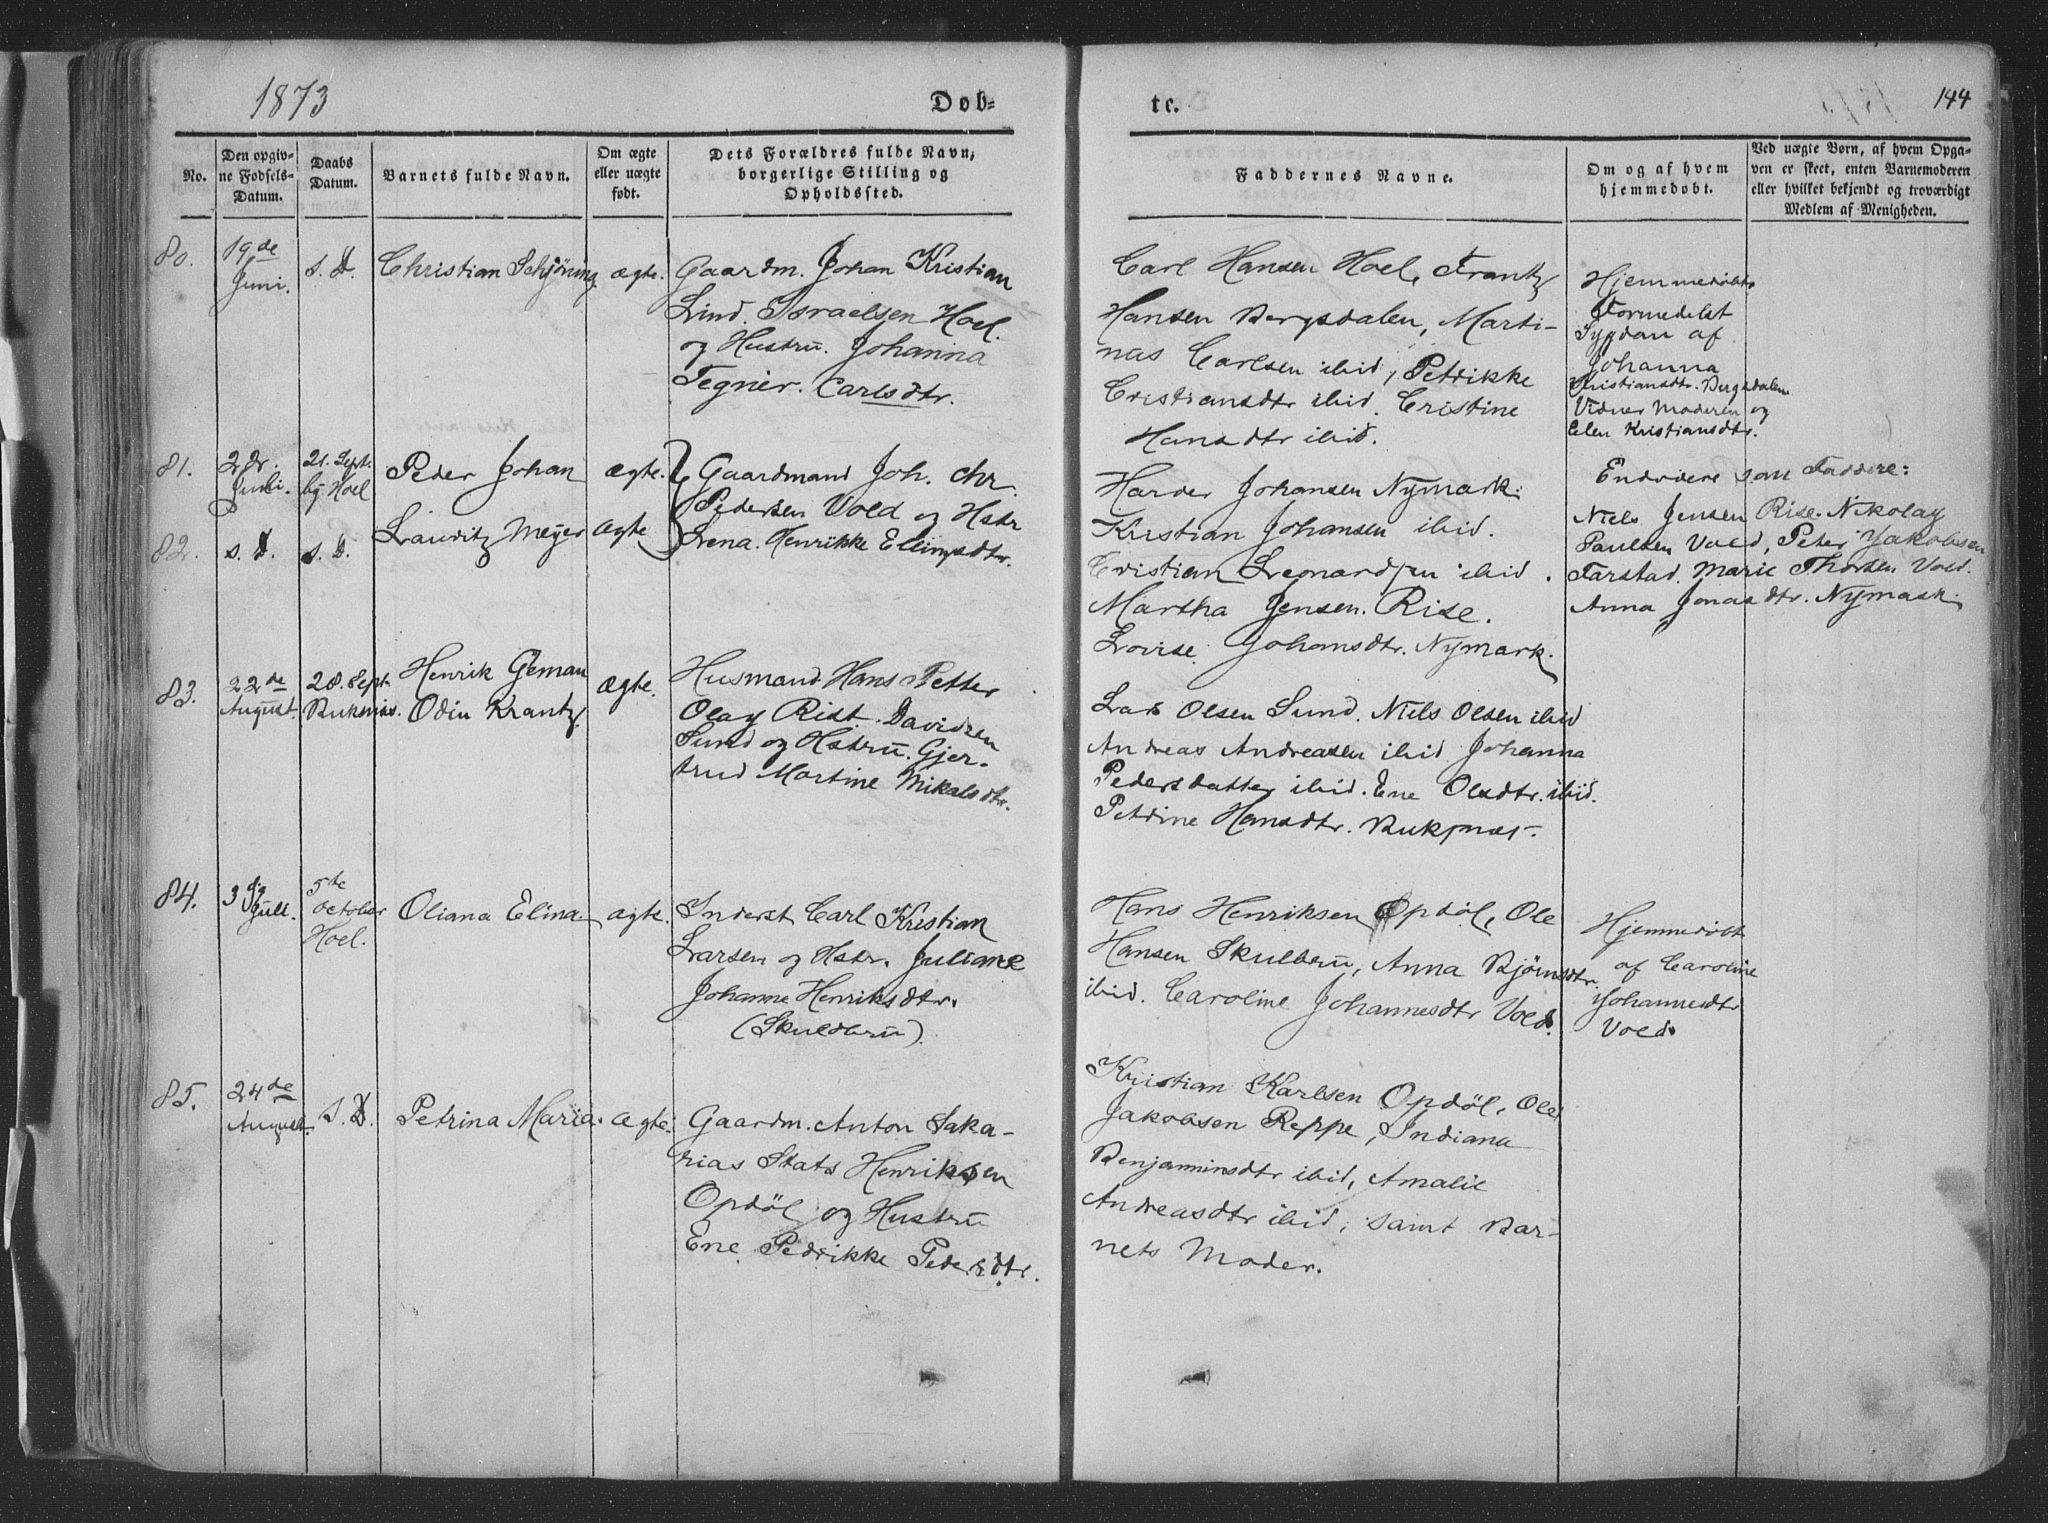 1873
Døb-
te.
144
No.
Den opgiv-
ne Fødsels-
Datum.
Daabs
Datum.
Barnets fulde Navn.
Om ægte
eller uægte
født.
Dets Forældres fulde Navn,
borgerlige Stilling og
Opholdssted.
Faddernes Navne.
Om og af hvem
hjemmedøbt.
Ved uægte Børn, af hvem Opga-
ven er skeet, enten Barnemoderen
eller hvilket bekjendt og troværdigt
Medlem af Menigheden.
80.
19de
Juni.
s. D.
Christian Schjöning
ægte.
Gaardm. Johan Kristian
Lind. Israelsen Hoel.
og Hustru. Johanna
Tegner. Carlsdtr.
Carl Hansen Hoel, Frantz
Hansen Bergsdalen, Marti-
nus Carlsen ibid, Petrikke
Cristiansdtr ibid. Cristine
Hansdtr ibid.
Hjemmedøbt
Formedelst
Sygdom af
Johanna
Kristiansdtr. Bergsdalen
Vidner Moderen og
Elen Kristiansdtr.
81.
Juli.
21. Sept.
Hoel
Peder Johan
ægte.
Gaardmand Joh. Chr.
Pedersen Vold og Hstr
Lena. Henrikke Ellingsdtr.
82.
s. D.
s. D.
Lauritz Meyer
ægte
Harder Johansen Nymark.
Kristian Johansen ibid.
Cristian Leonardsen ibid.
Martha Jensen. Rise.
Lovise. Johansdtr. Nymark.
Endvidere som Faddere:
Niels Jensen Rise. Nikolay
Paulsen Vold, Peter Jakobsen
Farstad. Marie Thorsen Vold.
Anna Jonasdtr. Nymark.
83.
22de
August.
28. Sept.
Buksnæs.
Henrik German
Odin Krantz.
ægte.
Husmand Hans Petter
Olay Rist. Davidsen
Sund og Hstru. Gjer-
trud Martine Mikalsdtr.
Lars Olsen Sund. Niels Olsen ibid
Andreas Andreasen ibid Johanna
Pedersdatter ibid. Ene Olsdtr. ibid.
Petrine Hansdtr. Buksnæs.
84.
Juli.
5te
October
Hoel.
Oliana Elina
ægte.
Inderst Carl Kristian
Larsen og Hstr. Juliane
Johanne Henriksdtr.
(Skuldbru).
Hans Henriksen Opdöl, Ole
Hansen Skulbru, Anna Bjørnsdtr.
ibid. Caroline Johannesdtr Vold.
Hjemmedøbt
af Caroline
Johannesdtr
Vold.
85.
24de
August.
s. D.
Petrina Maria.
ægte.
Gaardm. Anton Saka-
rias Stats Henriksen
Opdöl og Hustru
Ene Pedrikke Pedersdtr.
Kristian Karlsen Opdöl, Ole
Jakobsen Reppe, Indiana
Benjaminsdtr ibid, Amalie
Andreasdtr ibid, samt Bar-
nets Moder.